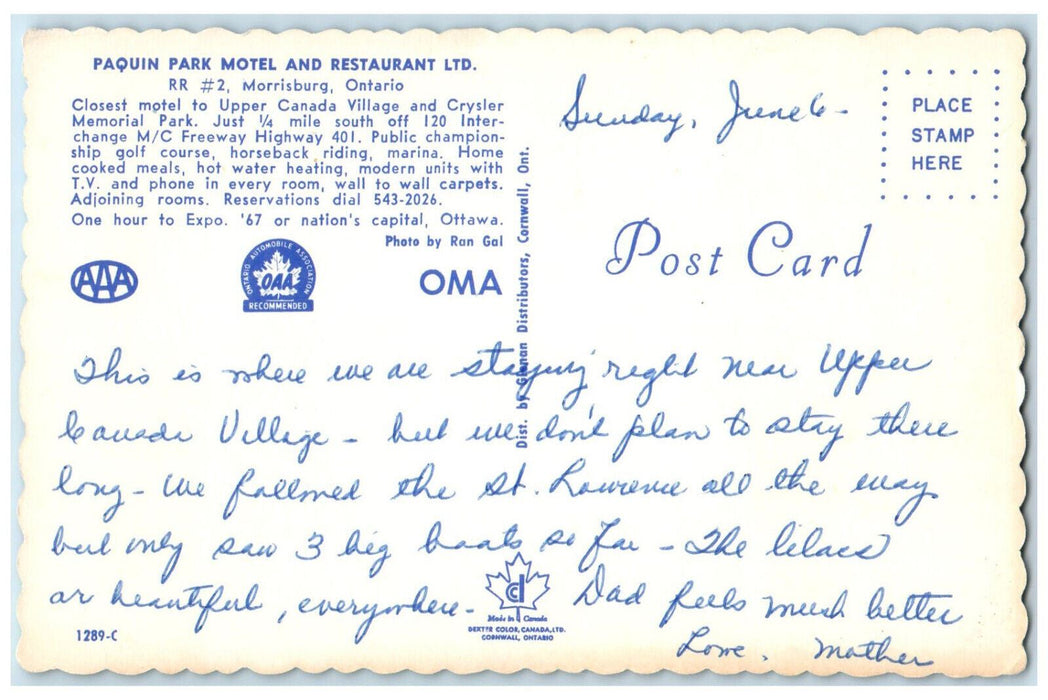 PAQUIN PARK MOTEL AND RESTAURANT LTD.
RR #2, Morrisburg, Ontario
Closest motel to Upper Canada Village and Crysler
Memorial Park. Just ¼ mile south off 120 Inter-
change M/C Freeway Highway 401. Public champion-
ship golf course, horseback riding, marina. Home
cooked meals, hot water heating, modern units with
T.V. and phone in every room, wall to wall carpets.
Adjoining rooms. Reservations dial 543-2026.
One hour to Expo. '67 or nation's capital, Ottawa.
Photo by Ran Gal
AAA
ONTARIO AUTOMOBILE ASSOCIATION
OAA
RECOMMENDED
OMA
Dist. by Glenan Distributors, Cornwall, Ont.
Sunday, June 6 -
PLACE
STAMP
HERE
Post Card
This is where we are staying right near Upper
Canada Village - but we don't plan to stay there
long - We followed the St. Lawrence all the way
but only saw 3 big boats so far - The lilacs
ar beautiful, everywhere - Dad feels much better
Love, Mother
cd
Made in Canada
DEXTER COLOR, CANADA, LTD.
CORNWALL, ONTARIO
1289-C